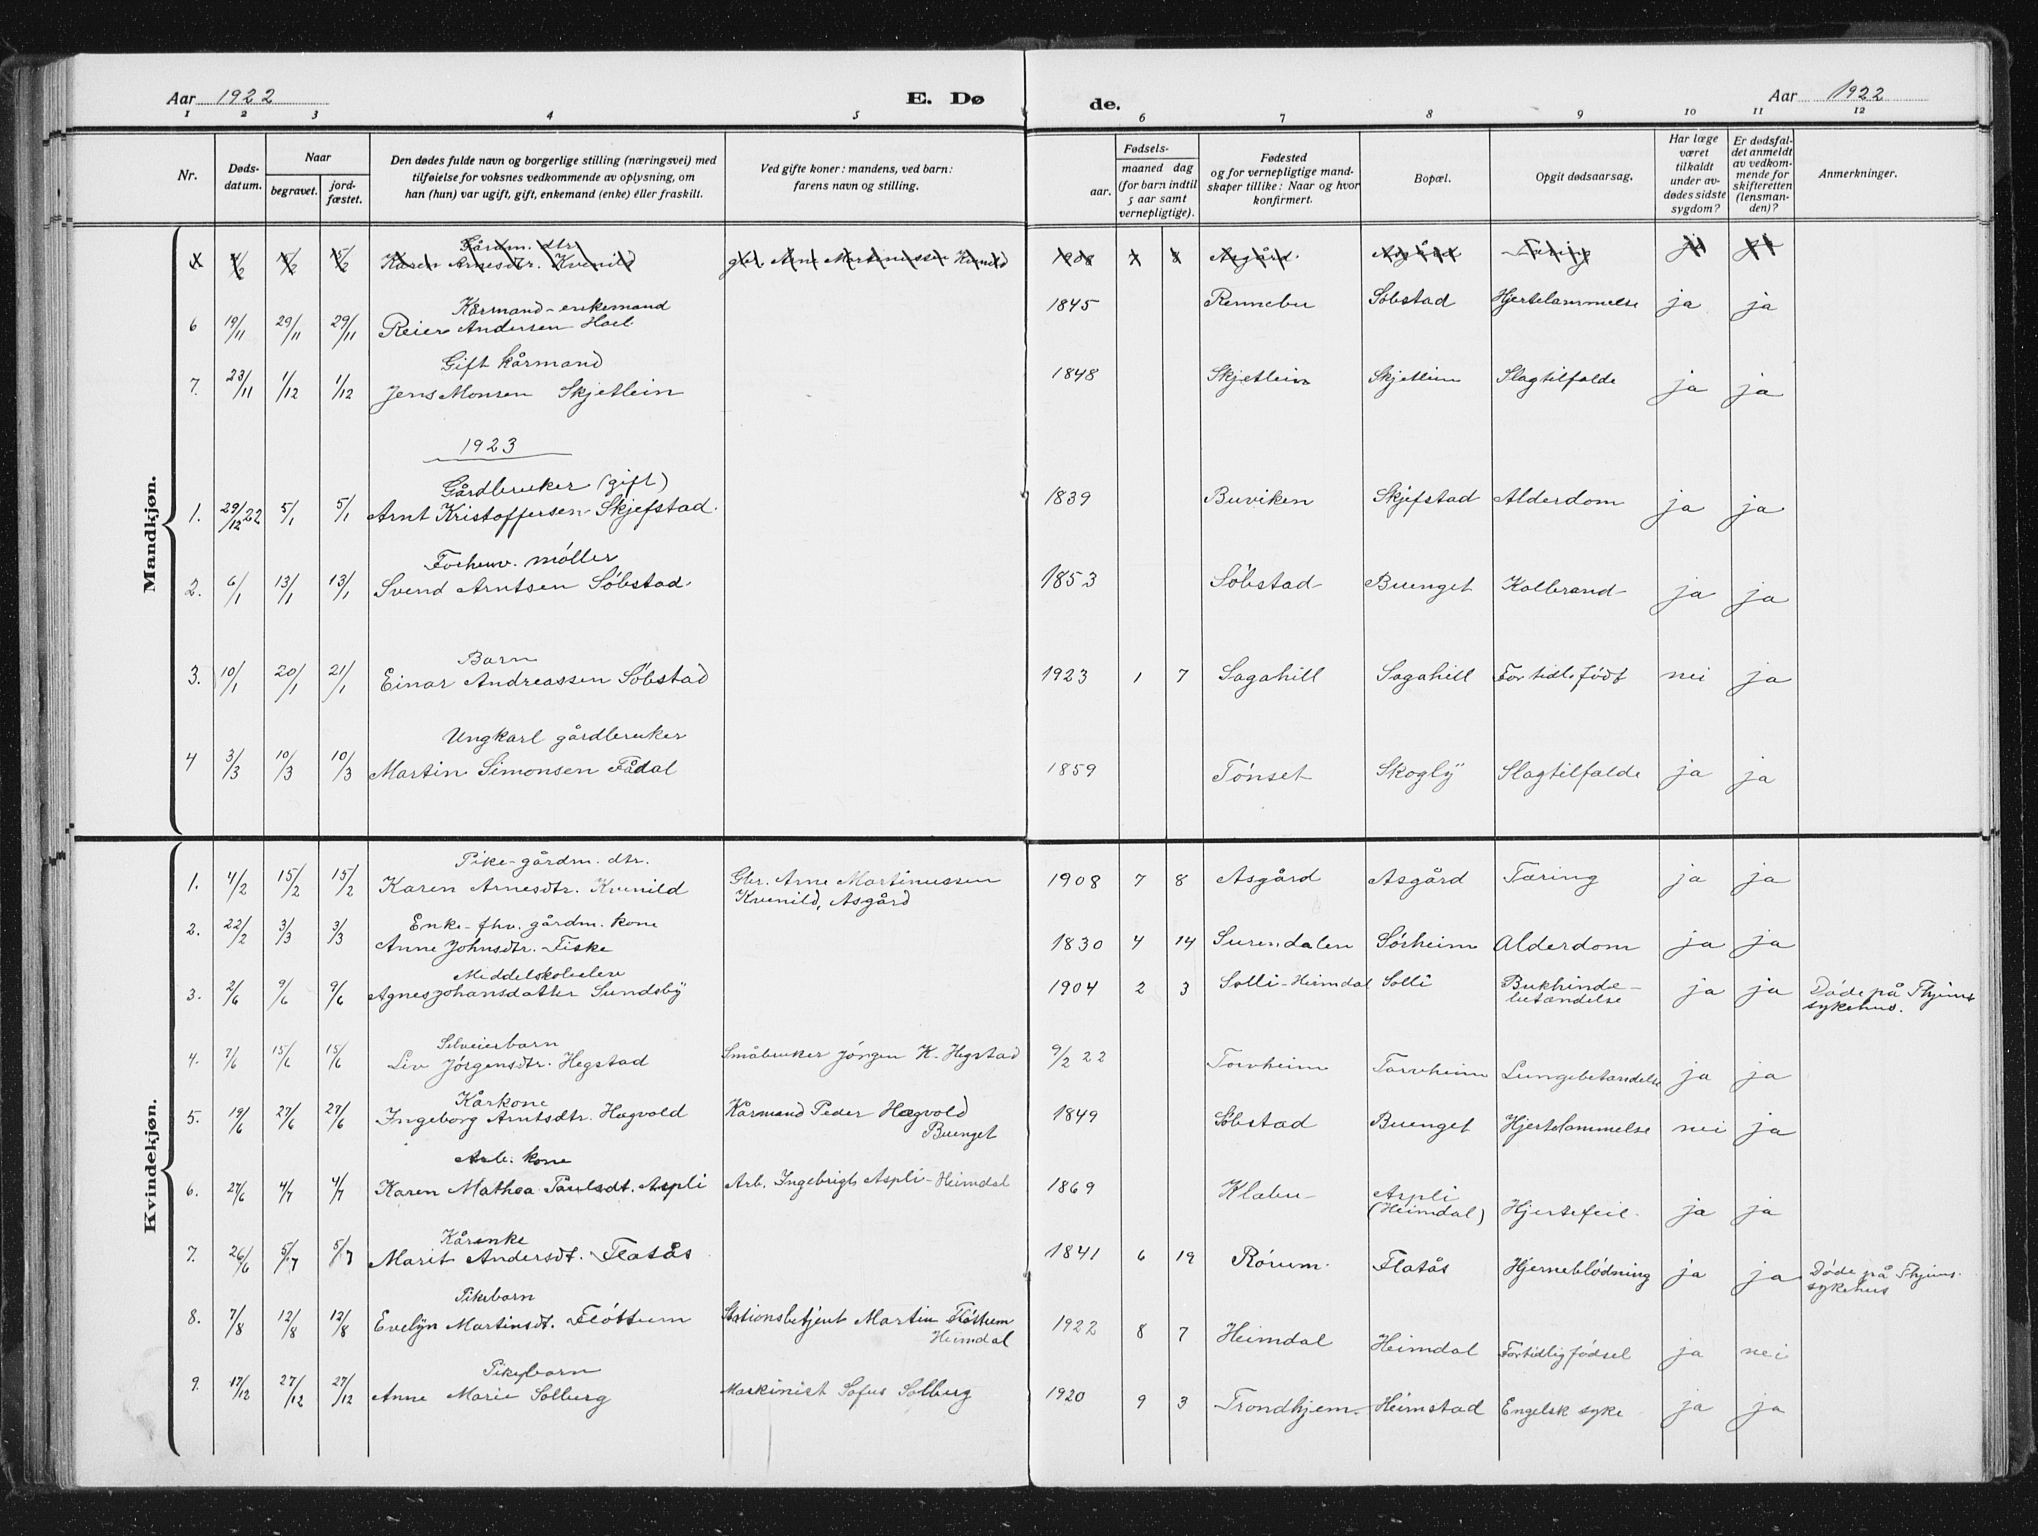 Aar 1922 E. Dø de. Aar 1922
1 2 3 4 5 6 7 8 9 10 11 12
Nr.
Døds-datum.
Naar
begravet.
jord-fæstet.
Den dødes fulde navn og borgerlige stilling (næringsvei) med
tilføielse for voksnes vedkommende av oplysning, om
han (hun) var ugift, gift, enkemand (enke) eller fraskilt.
Ved gifte koner: mandens, ved barn:
farens navn og stilling.
Fødsels-
aar.
maaned dag
(for barn indtil
5 aar samt
vernepligtige).
Fødested
og for vernepligtige mand-
skaper tillike: Naar og hvor
konfirmert.
Bopæl.
Opgit dødsaarsag.
Har læge
været
tilkaldt
under av-
dødes sidste
sygdom?
Er dødsfal-
det anmeldt
av vedkom-
mende for
skifteretten
(lensman-
den)?
Anmerkninger.
Mandkjøn.
Gårdm. dtr.
Karen Arnesdtr. Kvenild gbr. Arne Martinussen Kvenild 1908 7 8 Asgård Asgård Tæring ja ja
Kårmand - enkemand
6 19/11 29/11 29/11 Reier Andersen Hoel 1845 Rennebu Søbstad Hjertelammelse ja ja
Gift kårmand
7. 23/11 1/12 1/12 Jens Monsen Skjetlein 1848 Skjetlein Skjetlein Slagtilfælde ja ja
1923
Gårdbruker (gift)
1. 29/12 22 5/1 5/1 Arnt Kristoffersen Skjefstad. 1839 Buviken Skjefstad Alderdom ja ja
Forhenv. møller
2. 6/1 13/1 13/1 Svend Arntsen Søbstad. 1853 Søbstad Buenget Kolbrand ja ja
Barn
3. 10/1 20/1 21/1 Einar Andreassen Søbstad 1923 1 7 Sagahill Sagahill For tidl. født nei ja
Ungkarl gårdbruker
4 3/3 10/3 10/3 Martin Simonsen Fådal 1859 Tønset Skogly Slagtilfælde ja ja
Kvindekjøn.
Pike - gårdm. dtr.
1. 4/2 15/2 15/2 Karen Arnesdtr. Kvenild Gbr. Arne Martinussen 1908 7 8 Asgård Asgård Tæring ja ja
Kvenild, Asgård
Enke - fhv. gårdm. kone
2. 22/2 3/3 3/3 Anne Johnsdtr. Fiske 1830 4 14 Surendalen Sørheim Alderdom ja ja
Middelskoleelev
3. 2/6 9/6 9/6 Agnes Johansdatter Sundsby 1904 2 3 Solli - Heimdal Solli Bukhinde- ja ja Døde på Thjems
betændelse sykehus.
Selveierbarn
4. 7/6 15/6 15/6 Liv Jørgensdtr. Hegstad Småbruker Jørgen K. Hegstad 9/2 22 Torvheim Torvheim Lungebetændelse ja ja
Kårkone
5. 19/6 27/6 27/6 Ingeborg Arntsdtr. Hægvold Kårmand Peder Hægvold 1849 Søbstad Buenget Hjertelammelse nei ja
Buenget
Arb. kone
6. 27/6 4/7 4/7 Karen Mathea Paulsdt. Aspli Arb. Ingebrigt Aspli - Heimdal 1869 Klæbu Aspli Hjertefeil. ja ja
(Heimdal)
Kårenke
7. 26/6 5/7 5/7 Marit Andersdt. Flatås 1841 6 19 Rørum. Flatås Hjerneblødning ja ja Døde på Thjems.
sykehus
Pikebarn
8. 7/8 12/8 12/8 Evelyn Martinsdt. Fløttum Stationsbetjent Martin Fløttum 1922 8 7 Heimdal Heimdal For tidlig fødsel ja nei
Heimdal
Pikebarn
9. 17/12 27/12 27/12 Anne Marie Solberg Maskinist Sofus Solberg 1920 9 3 Trondhjem Heimstad Engelsk syke ja ja